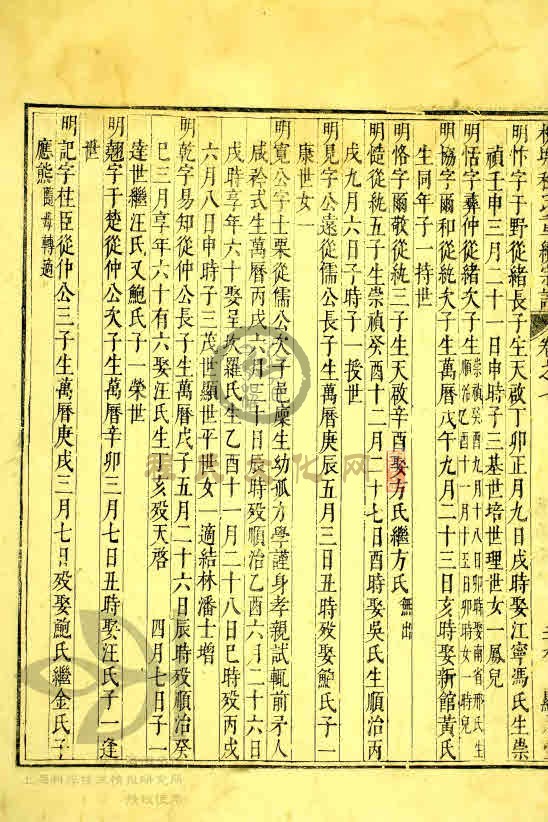 明忭字干野從緒長子生天啟丁卯正月九日戌時娶江寧馮氏生崇
禎壬申三月二十一日申時子三基世培世理世女一鳳兒
明恬字彞仲從緒次子崇禎癸酉九月十八日卯時娶南省邢氏生
順治乙酉十一月十五日卯時女一時兒
明協字爾和從統次子生萬曆戊午九月二十三日亥時娶新館黃氏
生同年子一持世
明恪字爾敬從統三子生天啟辛酉娶方氏繼方氏無出
明慥從統五子生崇禎癸酉十二月二十七日酉時娶吳氏生順治丙
戌九月六日子時子一授世
明見字公遠從儒公長子生萬曆庚辰五月三日丑時歿娶鮑氏子一
康世女一
明寬公字士栗從儒公次子邑廩生幼孤力學謹身孝親試輒前矛人
咸矜式生萬曆丙戌六月三十日辰時歿順治乙酉六月二十六日
戌時享年六十娶呈坎羅氏生乙酉十一月二十八日巳時歿丙戌
六月八日申時子三茂世顯世平世女一適結林潘士增
明乾字易知從仲公長子生萬曆戊子五月二十六日辰時歿順治癸
巳三月享年六十有六娶汪氏生丁亥歿天啓 四月七日子一
達世繼汪氏又鮑氏子一榮世
明翹字于楚從仲公次子生萬曆辛卯三月七日丑時娶汪氏子一逢
世
明記字桂臣從仲公三子生萬曆庚戌三月七日歿娶鮑氏繼金氏子
應熊隨母轉適